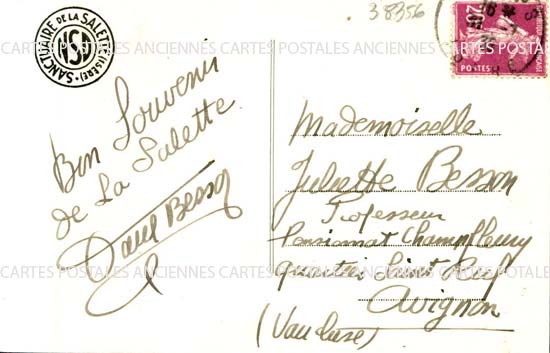 SANCTUAIRE DE LA SALETTE (ISÈRE)
NSD
38356
POSTES
Bon Souvenir
de La Salette
Paul Besson
Mademoiselle
Juliette Besson
Professeur
Pensionnat Champfleury
quartier Saint Ruf
Avignon
(Vaucluse)
CARTES POSTALES ANCIENNES CARTES POSTALES ANCIENNES CARTES POSTALES
CARTES POSTALES ANCIENNES CARTES POSTALES ANCIENNES CARTES POSTALES